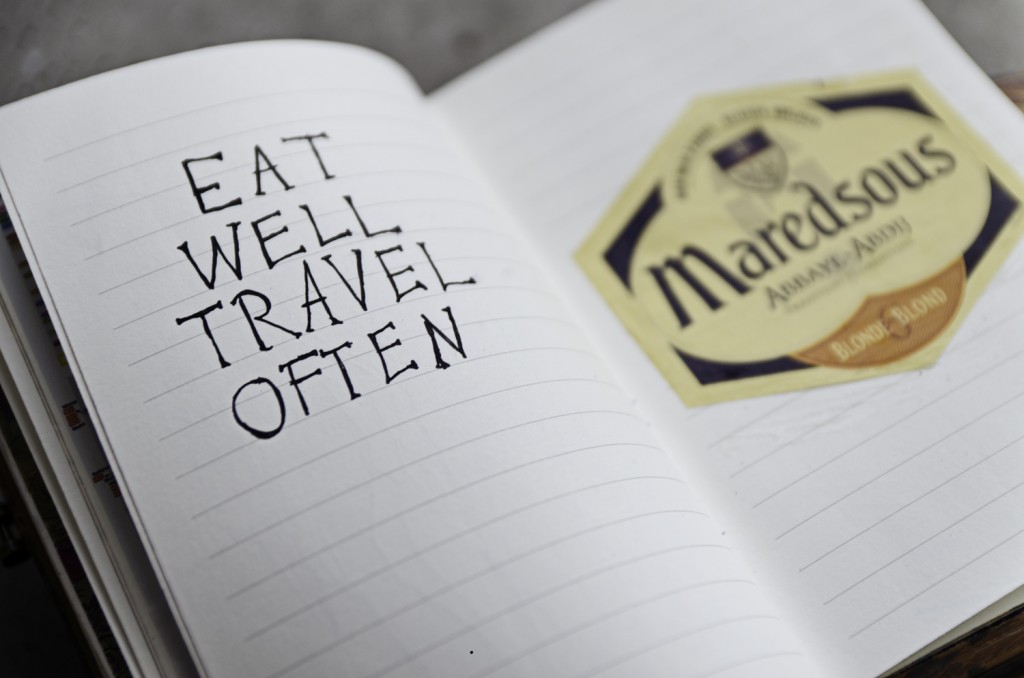 EAT
WELL
TRAVEL
OFTEN
Maredsous
ABBAYE-ABDIJ
BLONDE BLOND